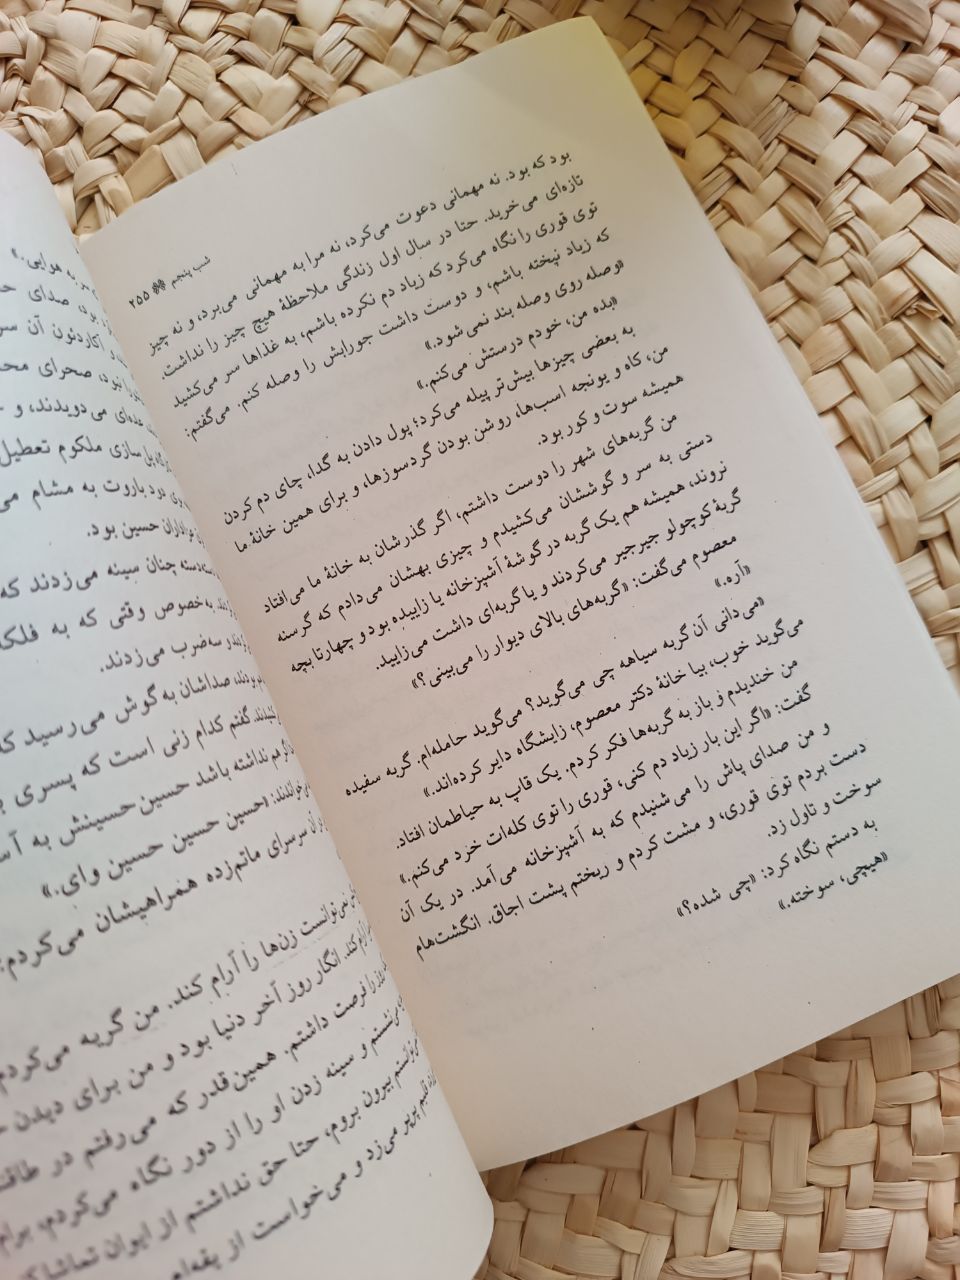 شب پنجم ❋❋ ۲۵۵
بود که بود. نه مهمانی دعوت می‌کرد، نه مرا به مهمانی می‌برد، و نه چیز
تازه‌ای می‌خرید. حتا در سال اول زندگی ملاحظهٔ هیچ چیز را نداشت.
توی قوری را نگاه می‌کرد که زیاد دم نکرده باشم، به غذاها سر می‌کشید
که زیاد نپخته باشم، و دوست داشت جورابش را وصله کنم. می‌گفتم:
«وصله روی وصله بند نمی‌شود.»
«بده من، خودم درستش می‌کنم.»
به بعضی چیزها بیش‌تر پیله می‌کرد؛ پول دادن به گدا، چای دم کردن
من، کاه و یونجه اسب‌ها، روشن بودن گردسوزها، و برای همین خانهٔ ما
همیشه سوت و کور بود.
من گربه‌های شهر را دوست داشتم، اگر گذرشان به خانهٔ ما می‌افتاد
دستی به سر و گوششان می‌کشیدم و چیزی بهشان می‌دادم که گرسنه
نروند، همیشه هم یک گربه در گوشهٔ آشپزخانه یا زاییده بود و چهارتا بچه
گربهٔ کوچولو جیرجیر می‌کردند و یا گربه‌ای داشت می‌زایید.
معصوم می‌گفت: «گربه‌های بالای دیوار را می‌بینی؟»
«آره.»
«می‌دانی آن گربه سیاهه چی می‌گوید؟ می‌گوید حامله‌ام. گربه سفیده
می‌گوید خوب، بیا خانهٔ دکتر معصوم، زایشگاه دایر کرده‌اند.»
من خندیدم و باز به گربه‌ها فکر کردم. یک قاپ به حیاطمان افتاد.
گفت: «اگر این بار زیاد دم کنی، قوری را توی کله‌ات خرد می‌کنم.»
و من صدای پاش را می‌شنیدم که به آشپزخانه می‌آمد. در یک آن
دست بردم توی قوری، و مشت کردم و ریختم پشت اجاق. انگشت‌هام
سوخت و تاول زد.
به دستم نگاه کرد: «چی شده؟»
«هیچی، سوخته.»
به هوایی.»
بود، صدای
آکاردئون آن سر
نبود، صحرای
عده‌ای می‌دویدند، و
سازی ملکوم تعطیل
باروت به مشام
عزاداران حسین بود.
چنان سینه می‌زدند که
به‌خصوص وقتی که به فلکه
و سه‌ضرب می‌زدند.
صداشان به گوش می‌رسید که
گفتم کدام زنی است که پسری
نداشته باشد حسین حسینش به
«حسین حسین حسین وای.»
آن سرسرای ماتم‌زده همراهیشان می‌کردم:
نمی‌توانست زن‌ها را آرام کند. من گریه می‌کردم
کند. انگار روز آخر دنیا بود و من برای دیدن
را فرصت داشتم. همین‌قدر که می‌رفتم در
می‌نشستم و سینه زدن او را از دور نگاه می‌کردم، برام
بیرون بروم، حتا حق نداشتم از ایوان تماشا
قلبم پرپر می‌زد و می‌خواست از یقه‌ام